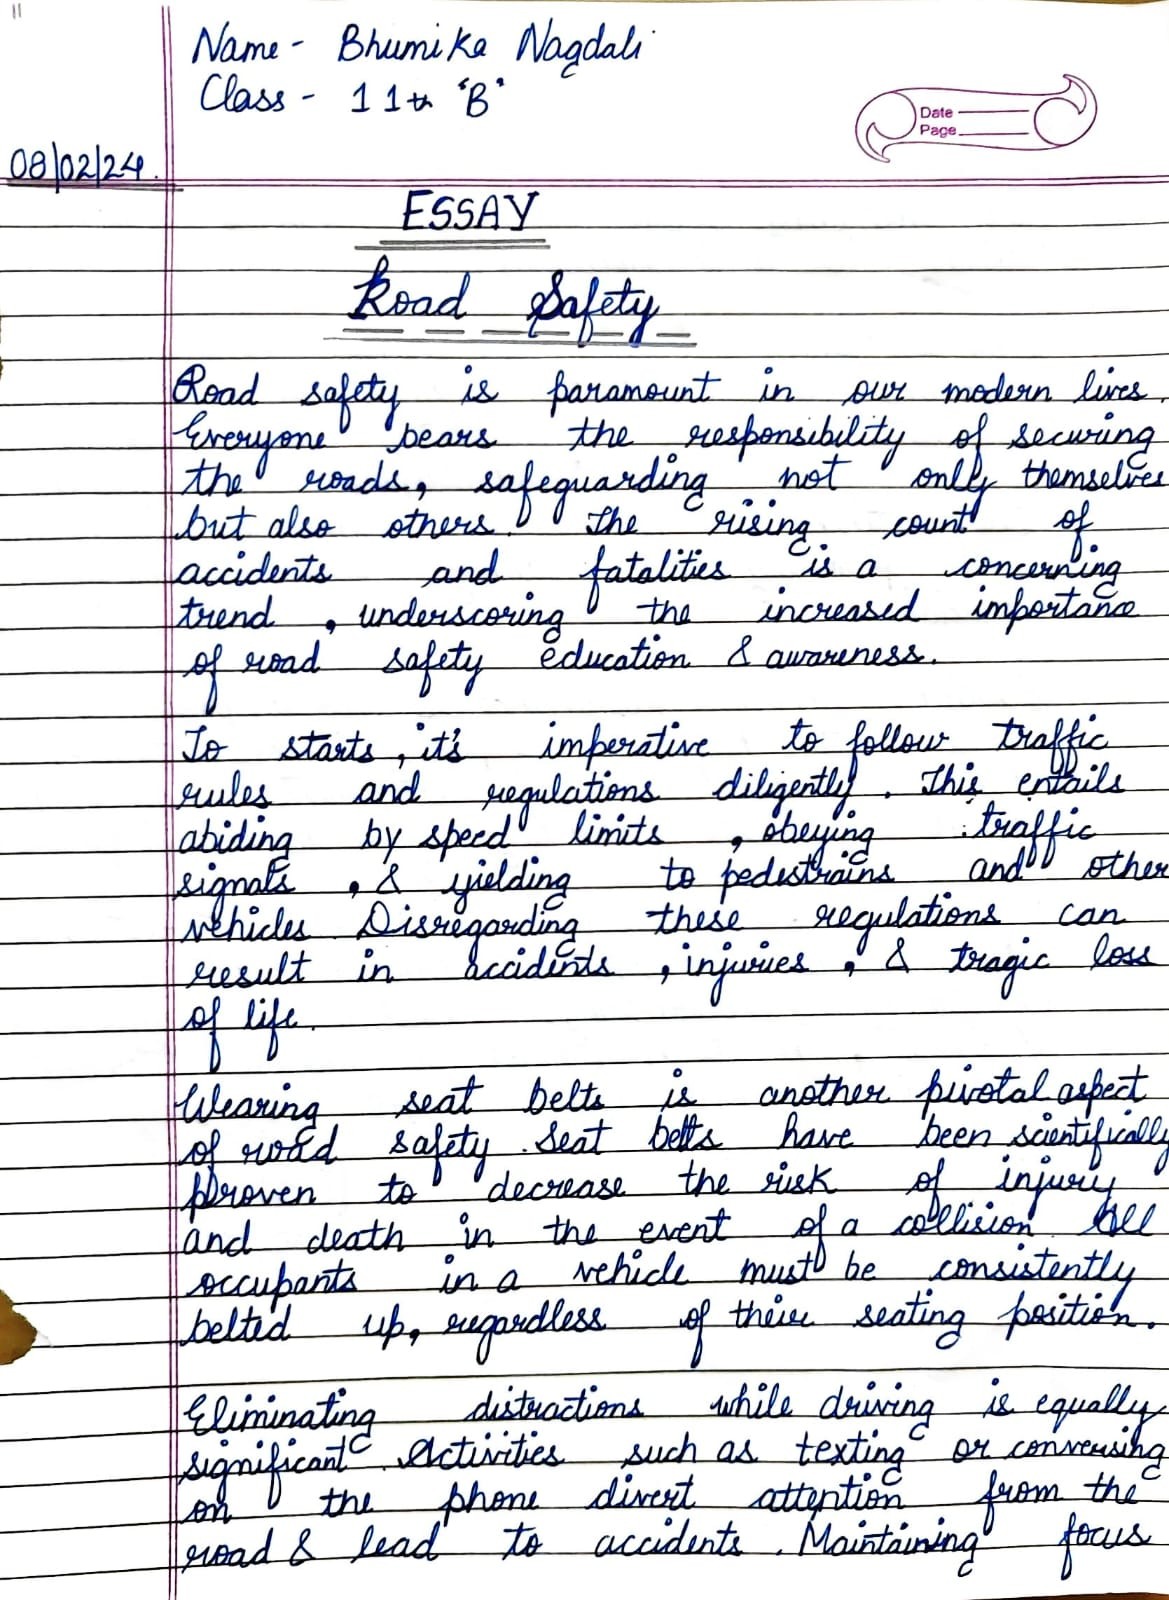 Name - Bhumika Nagdali
Class - 11th "B"
Date
Page
08/02/24.
ESSAY
Road Safety
Road safety is paramount in our modern lives.
Everyone bears the responsibility of securing
the roads, safeguarding not only themselves
but also others. The rising count of
accidents and fatalities is a concerning
trend, underscoring the increased importance
of road safety education & awareness.
To starts, it's imperative to follow traffic
rules and regulations diligently. This entails
abiding by speed limits, obeying traffic
signals, & yielding to pedestrains and other
vehicles. Disregarding these regulations can
result in accidents, injuries, & tragic loss
of life.
Wearing seat belts is another pivotal aspect
of road safety. Seat belts have been scientifically
proven to decrease the risk of injury
and death in the event of a collision. All
occupants in a vehicle must be consistently
belted up, regardless of their seating position.
Eliminating distractions while driving is equally
significant. Activities such as texting or conversing
on the phone divert attention from the
road & lead to accidents. Maintaining focus